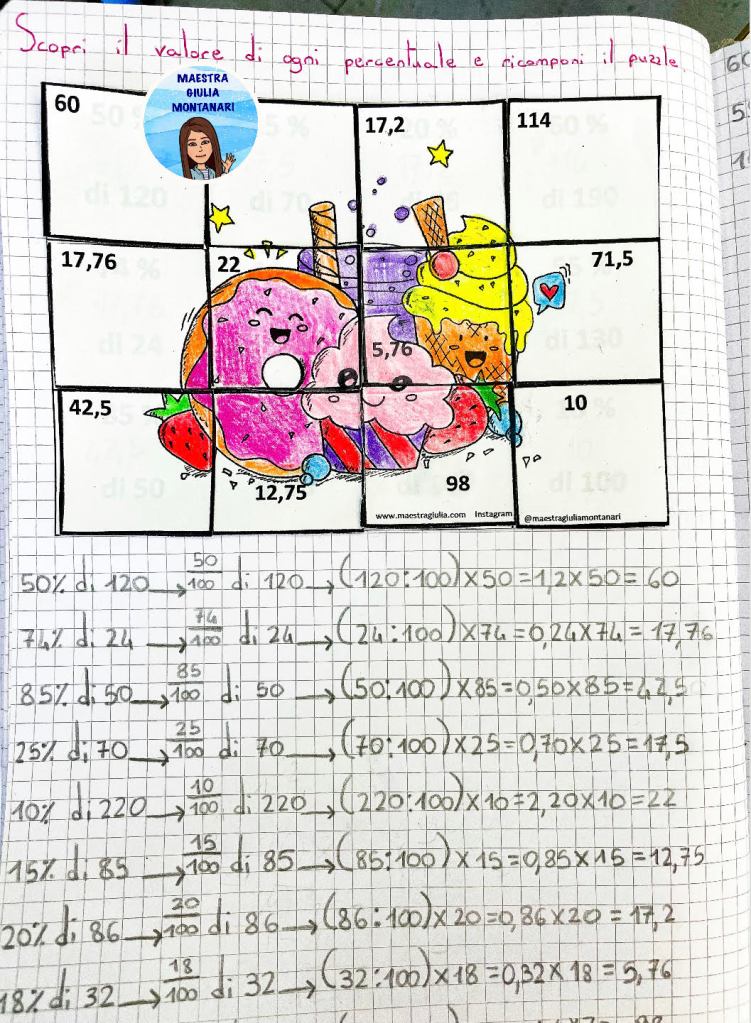 Scopri il valore di ogni percentuale e ricomponi il puzzle.
MAESTRA
GIULIA
MONTANARI
60
17,2
114
17,76
22
71,5
5,76
42,5
10
12,75
98
www.maestragiulia.com Instagram @maestragiuliamontanari
50% di 120 → 50/100 di 120 → (120:100)×50=1,2×50= 60
74% di 24 → 74/100 di 24 → (24:100)×74=0,24×74= 17,76
85% di 50 → 85/100 di 50 → (50:100)×85=0,50×85=42,5
25% di 70 → 25/100 di 70 → (70:100)×25=0,70×25=17,5
10% di 220 → 10/100 di 220 → (220:100)×10=2,20×10=22
15% di 85 → 15/100 di 85 → (85:100)×15=0,85×15=12,75
20% di 86 → 20/100 di 86 → (86:100)×20=0,86×20=17,2
18% di 32 → 18/100 di 32 → (32:100)×18=0,32×18=5,76